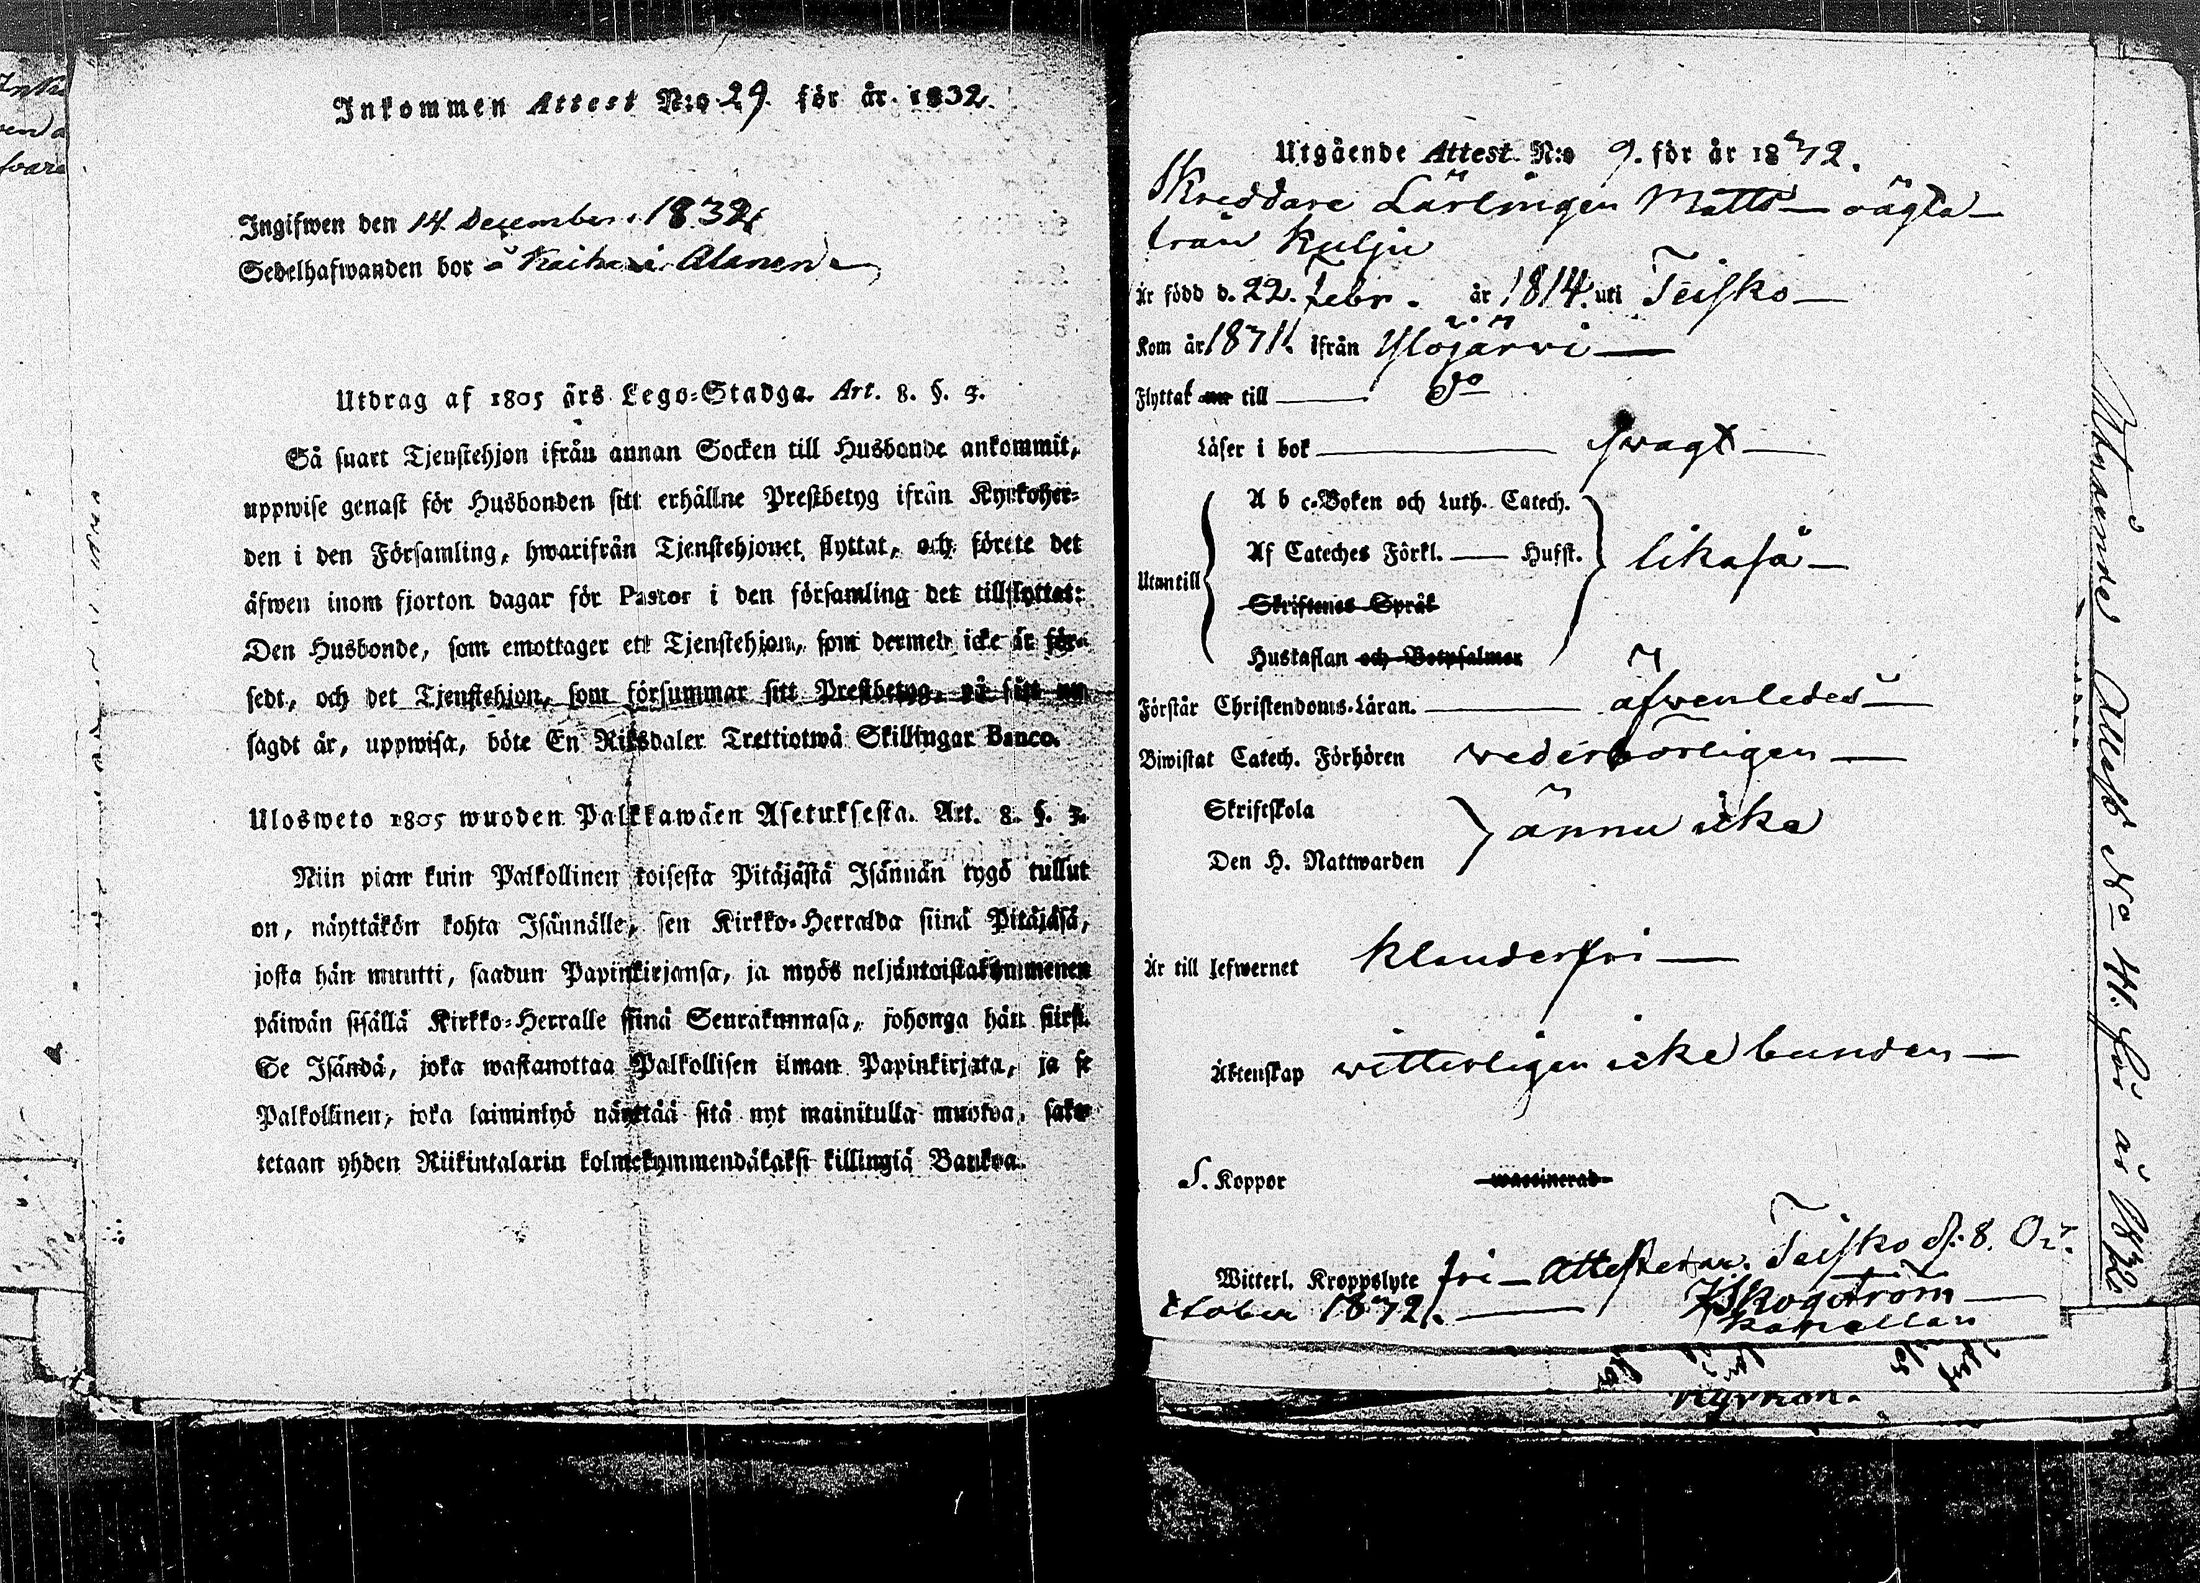 Inkommen Attest N:o 29. för år 1832.
Ingifwen den 14. December 1832
Sedelhafwanden bor å Alanen
Utdrag af 1805 års Lego-Stadga. Art. 8. §. 3.
Så snart Tjenstehjon ifrån annan Socken till Husbonde ankommit,
uppwise genast för Husbonden sitt erhållne Prestbetyg ifrån Kyrkoher-
den i den Församling, hwarifrån Tjenstehjonet flyttat, och förete det
äfwen inom fjorton dagar för Pastor i den församling det tillflyttat:
Den Husbonde, som emottager ett Tjenstehjon, som dermed icke är för-
sedt, och det Tjenstehjon, som försummar sitt Prestbetyg, på sätt nu
sagdt är, uppwisa, böte En Riksdaler Trettiotwå Skillingar Banco.
Ulosweto 1805 wuoden Palkkawäen Asetuksesta. Art. 8. §. 3.
Niin pian kuin Palkollinen toisesta Pitäjästä Isännän tygö tullut
on, näyttäkön kohta Isännälle, sen Kirkko-Herralda siinä Pitäjäsä,
josta hän muutti, saadun Papinkirjansa, ja myös neljäntoistakymmenen
päiwän sisällä Kirkko-Herralle siinä Seurakunnasa, johonga hän siirsi.
Se Isändä, joka wastanottaa Palkollisen ilman Papinkirjata, ja se
Palkollinen, joka laiminlyö näyttää sitä nyt mainitulla muotoa, sako-
tetaan yhden Riikintalarin kolmekymmendäkaksi killingiä Bankoa.
Utgående Attest N:o 9. för år 1832.
Skreddare Lärlingen Matts oägta
från Kulju
Är född d. 22. Febr. år 1814. uti Teisko
Kom år 1831. ifrån Ylöjärwi
Flyttat nu till do
Läser i bok swagt
A b c-Boken och Luth. Catech.
Af Cateches Förkl. Husft.
Utantill likaså
Skriftenes Språk
Hustaflan och Botpsalmer
Förstår Christendoms-Läran. äfwenledes
Biwistat Catech. Förhören wederbörligen
Skriftskola
ännu icke
Den H. Nattwarden
Är till lefwernet klanderfri
Äktenskap witterligen icke bunden
S. Koppor waccinerad
Witterl. Kroppslyte fri Attesterar. Teisko d. 8. Oc-
tober 1832.
Skogström
Kapellan
Nyman.
Utgående Attest No 41. för år 1832